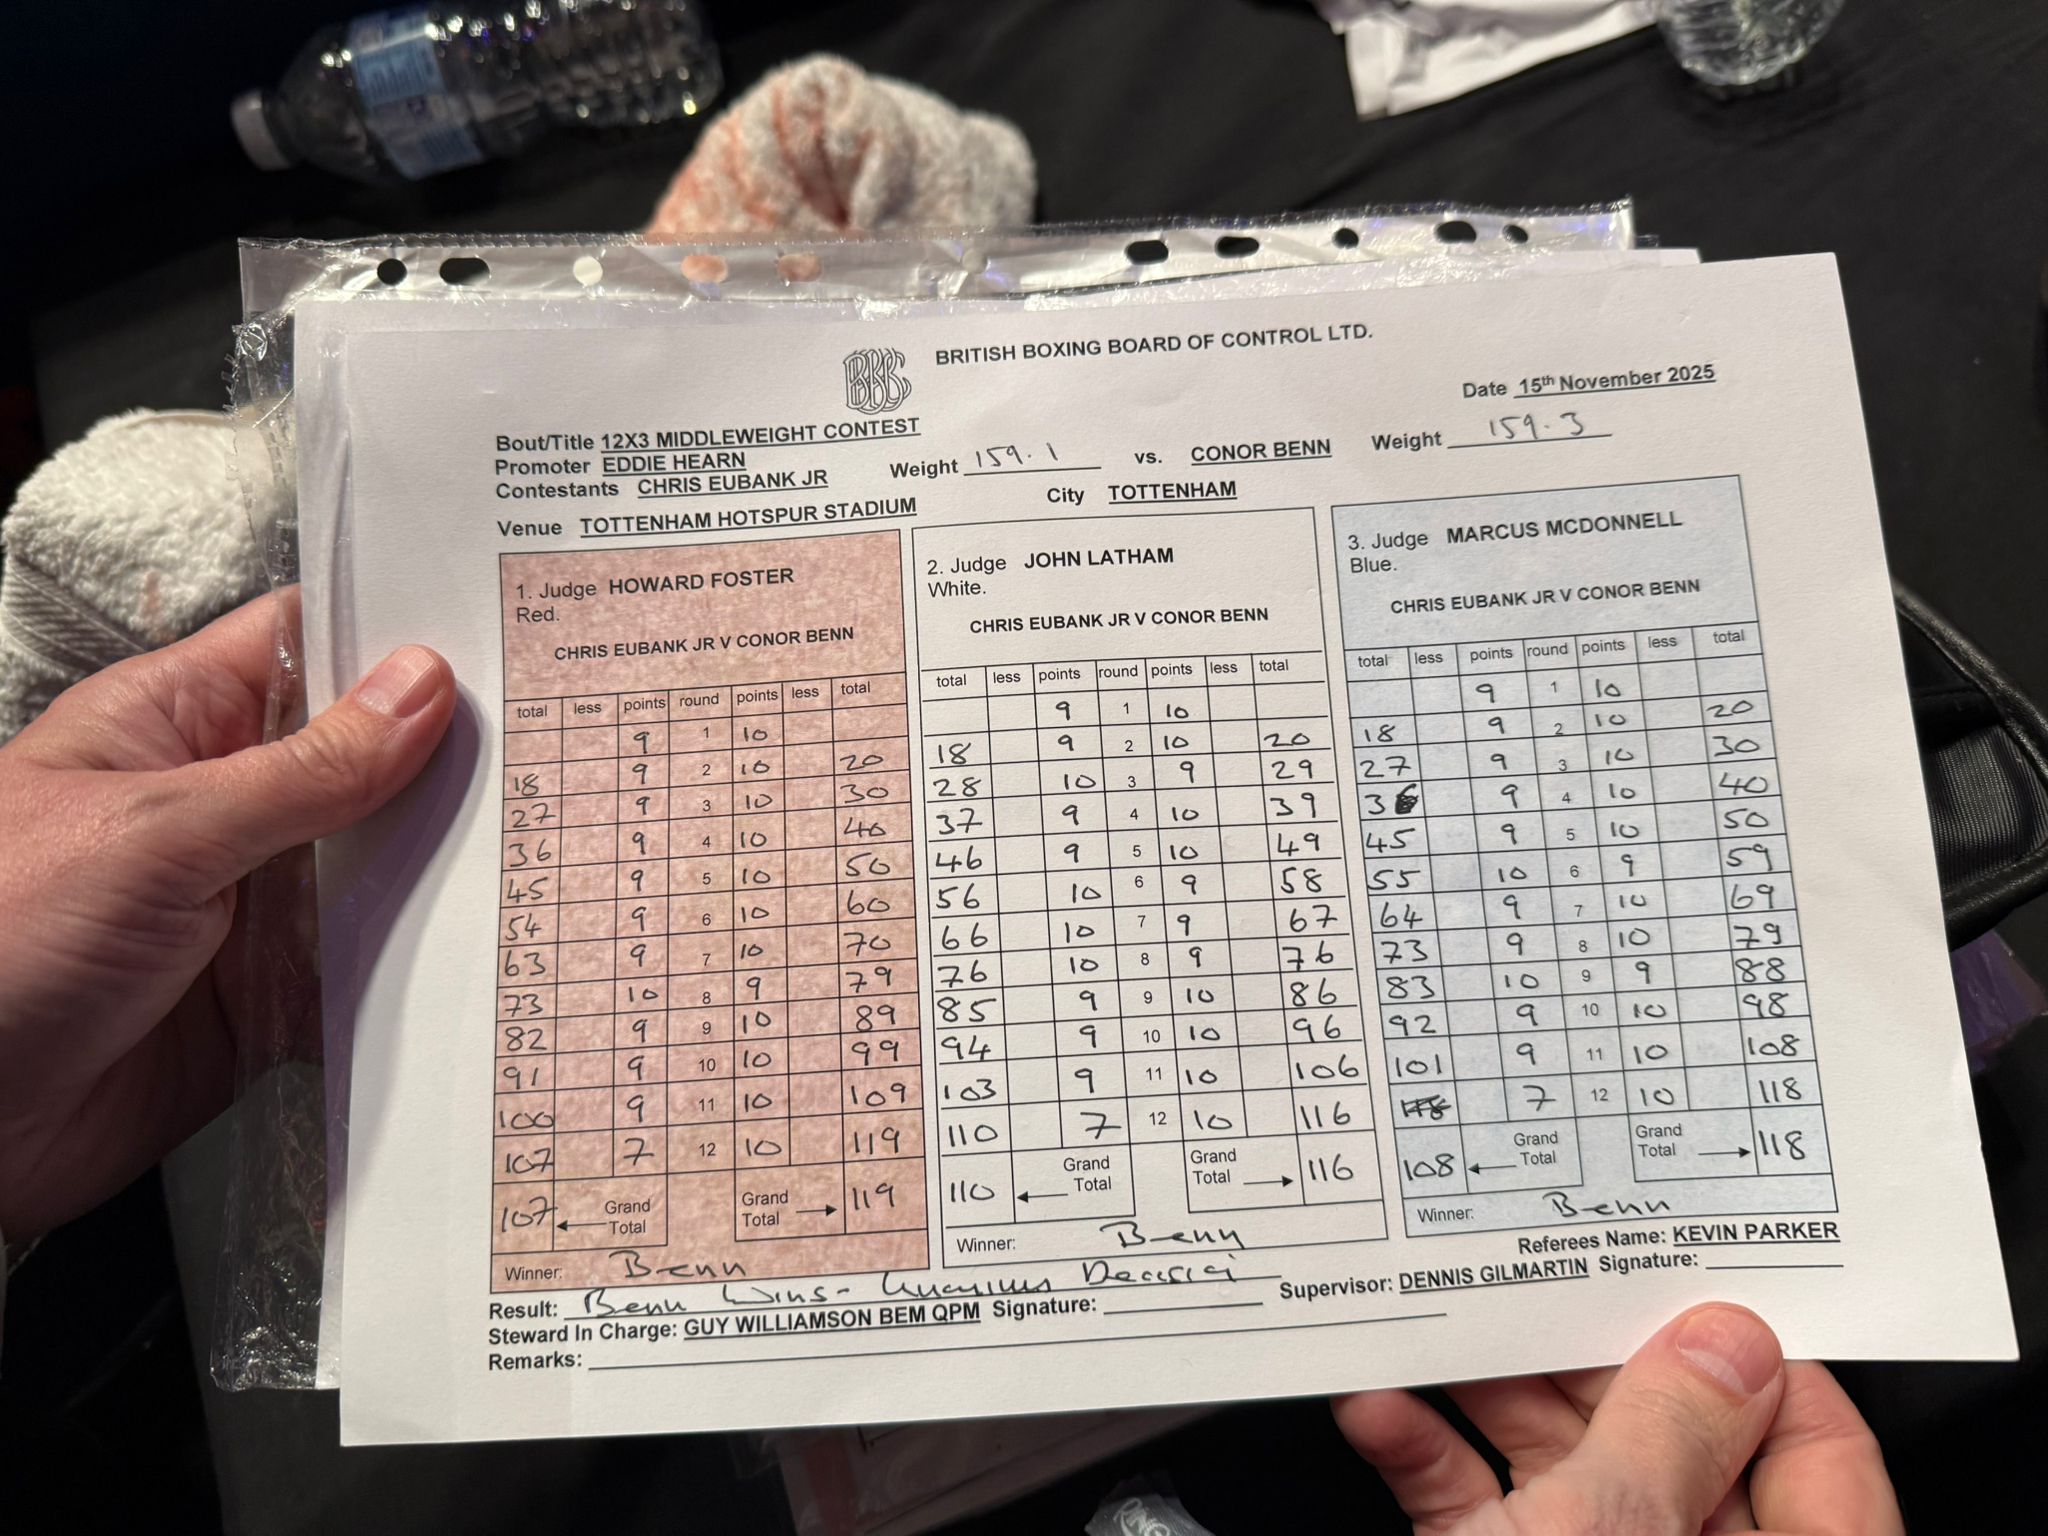 BRITISH BOXING BOARD OF CONTROL LTD.
Date 15th November 2025
Bout/Title 12X3 MIDDLEWEIGHT CONTEST
Promoter EDDIE HEARN
Contestants CHRIS EUBANK JR Weight 159.1 vs. CONOR BENN Weight 159.3
Venue TOTTENHAM HOTSPUR STADIUM City TOTTENHAM
1. Judge HOWARD FOSTER
Red.
CHRIS EUBANK JR V CONOR BENN
total less points round points less total
9 1 10
18 9 2 10 20
27 9 3 10 30
36 9 4 10 40
45 9 5 10 50
54 9 6 10 60
63 9 7 10 70
73 10 8 9 79
82 9 9 10 89
91 9 10 10 99
100 9 11 10 109
107 7 12 10 119
107 Grand Total Grand Total 119
Winner: Benn
2. Judge JOHN LATHAM
White.
CHRIS EUBANK JR V CONOR BENN
total less points round points less total
9 1 10
18 9 2 10 20
28 10 3 9 29
37 9 4 10 39
46 9 5 10 49
56 10 6 9 58
66 10 7 9 67
76 10 8 9 76
85 9 9 10 86
94 9 10 10 96
103 9 11 10 106
110 7 12 10 116
110 Grand Total Grand Total 116
Winner: Benn
3. Judge MARCUS MCDONNELL
Blue.
CHRIS EUBANK JR V CONOR BENN
total less points round points less total
9 1 10
18 9 2 10 20
27 9 3 10 30
36 9 4 10 40
45 9 5 10 50
55 10 6 9 59
64 9 7 10 69
73 9 8 10 79
83 10 9 9 88
92 9 10 10 98
101 9 11 10 108
7 12 10 118
108 Grand Total Grand Total 118
Winner: Benn
Referees Name: KEVIN PARKER
Result: Benn Wins -
Supervisor: DENNIS GILMARTIN Signature:
Steward In Charge: GUY WILLIAMSON BEM QPM Signature:
Remarks: